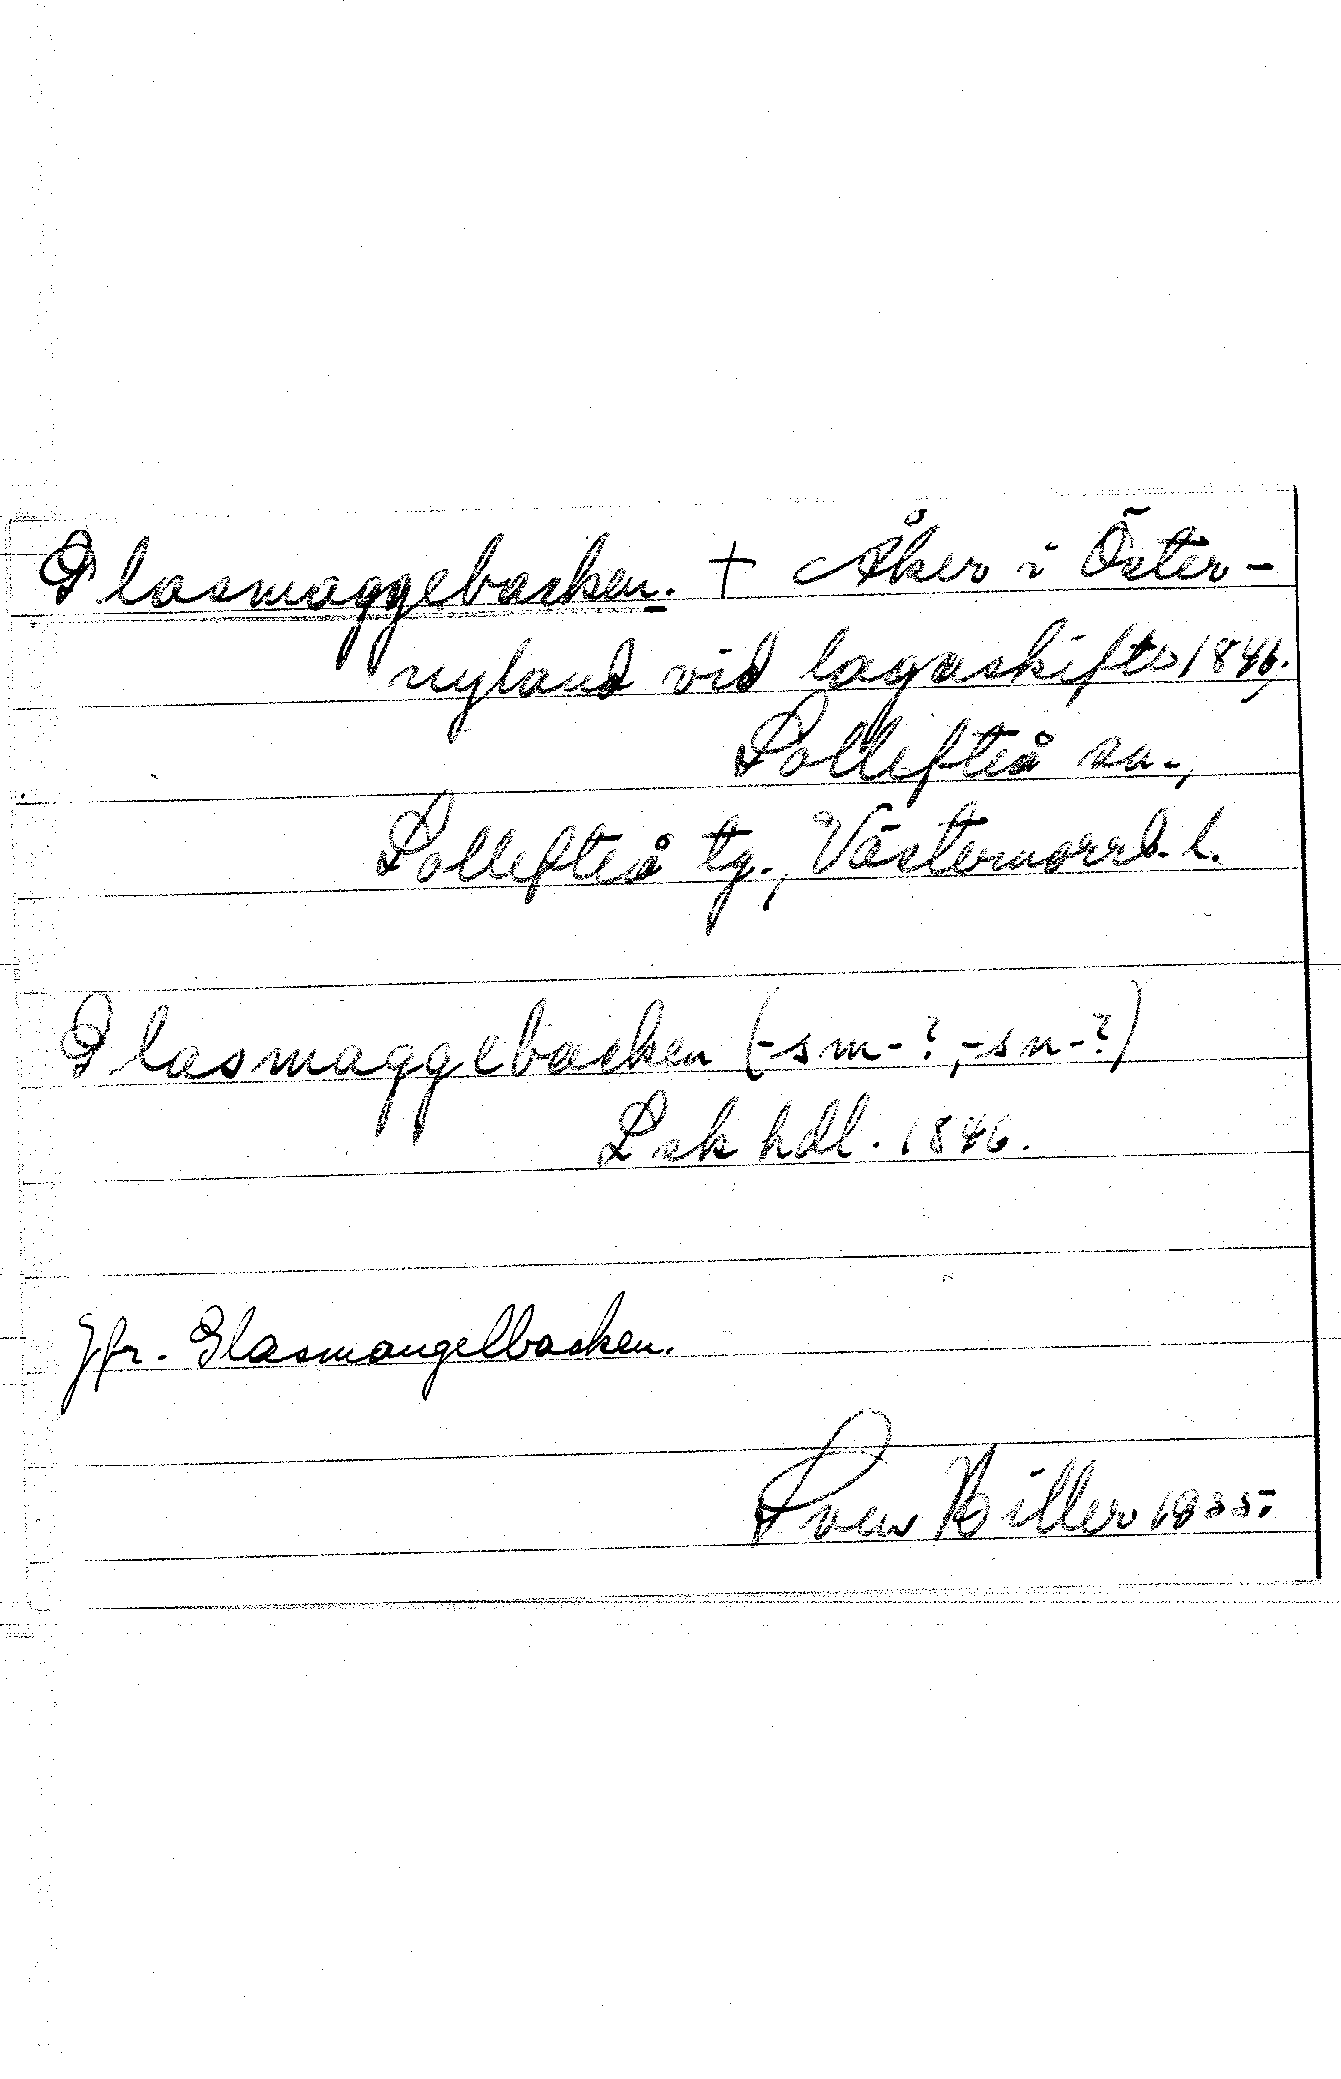 Glasmaggebacken. + Åker i Öster-
nyland vid lagaskifte 1846.,
Sollefteå sn.,
Sollefteå tg., Västernorrl. l.
Glasmaggebacken (-sm-?, -sn-?)
Lsk hdl. 1846.
Jfr. Glasmangelbacken.
Sven Hiller 1955.